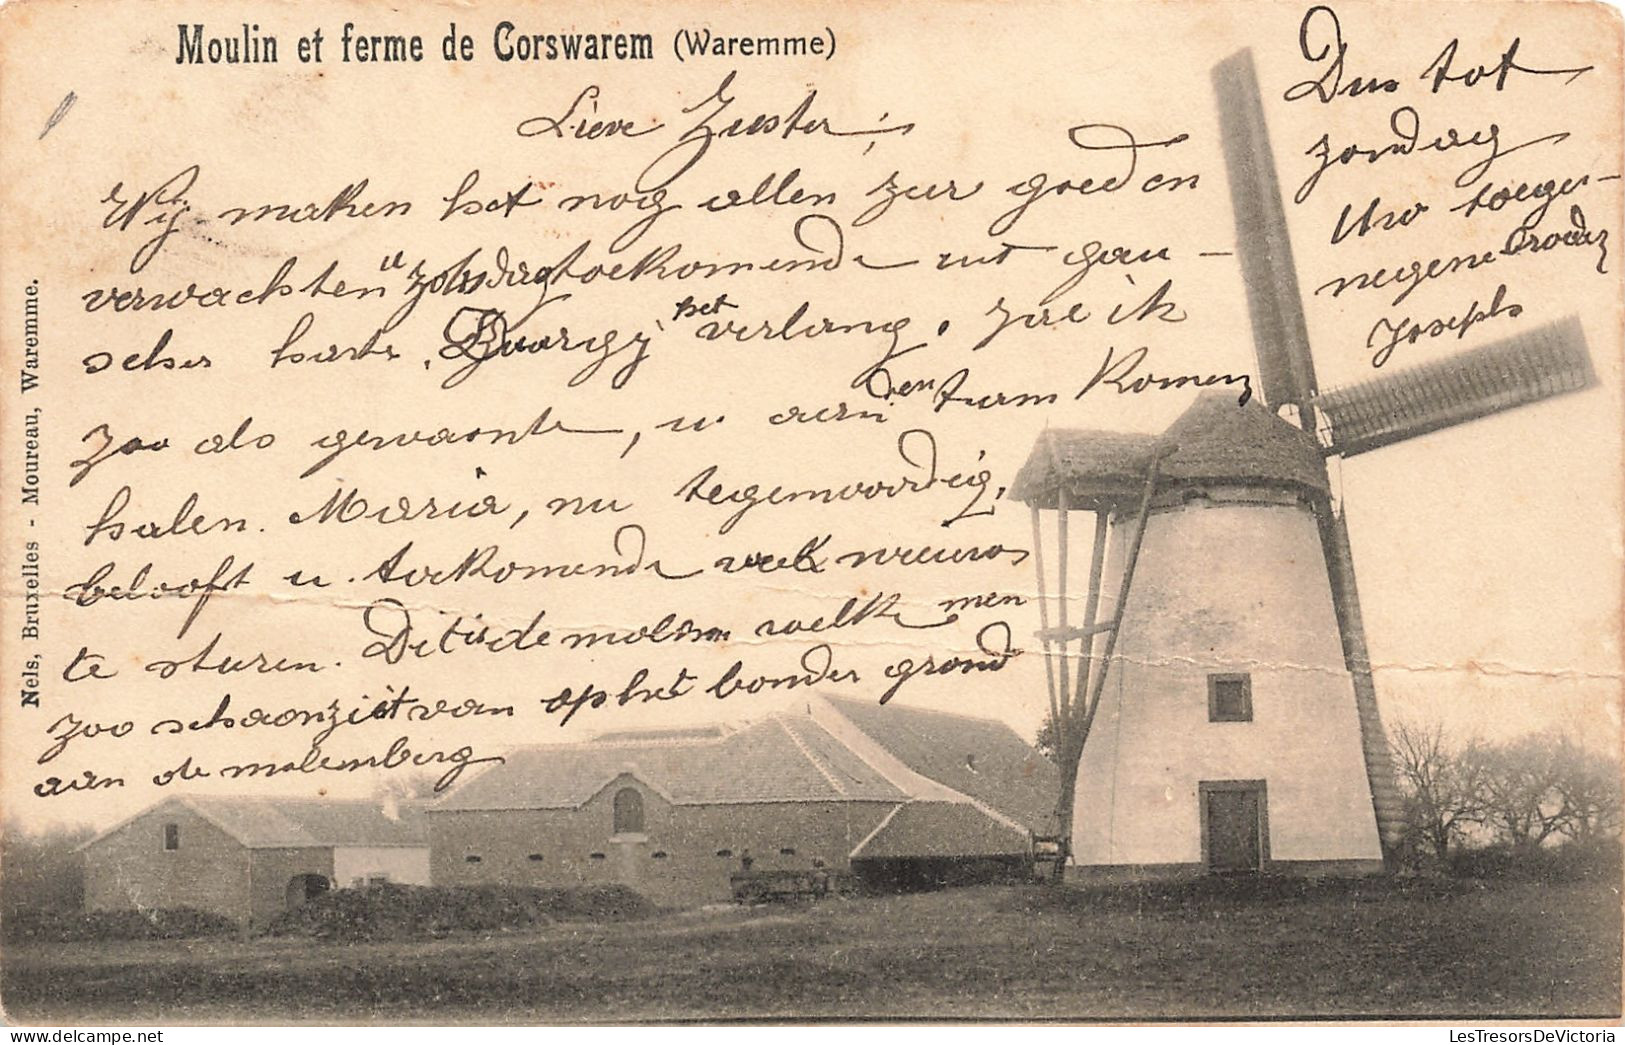 Moulin et ferme de Corswarem (Waremme)
Lieve Zuster,
Wij maken het nog allen zur goeden
verwachten u zondag toekomende uit gan-
scher harte. het verlang. Zal ik
Zoo als gewoonte, u aan den turm komen
halen. Maria, nu tegenwoordig,
belooft u toekomende week nieuws
te sturen. Dit is de molen welk men
zoo schoon ziet van op het bonder grond
aan de molenberg
Dus tot
zondag
Uw toege-
negene Broeder
Joseph
Nels, Bruxelles - Moureau, Waremme.
LesTresorsDeVictoria